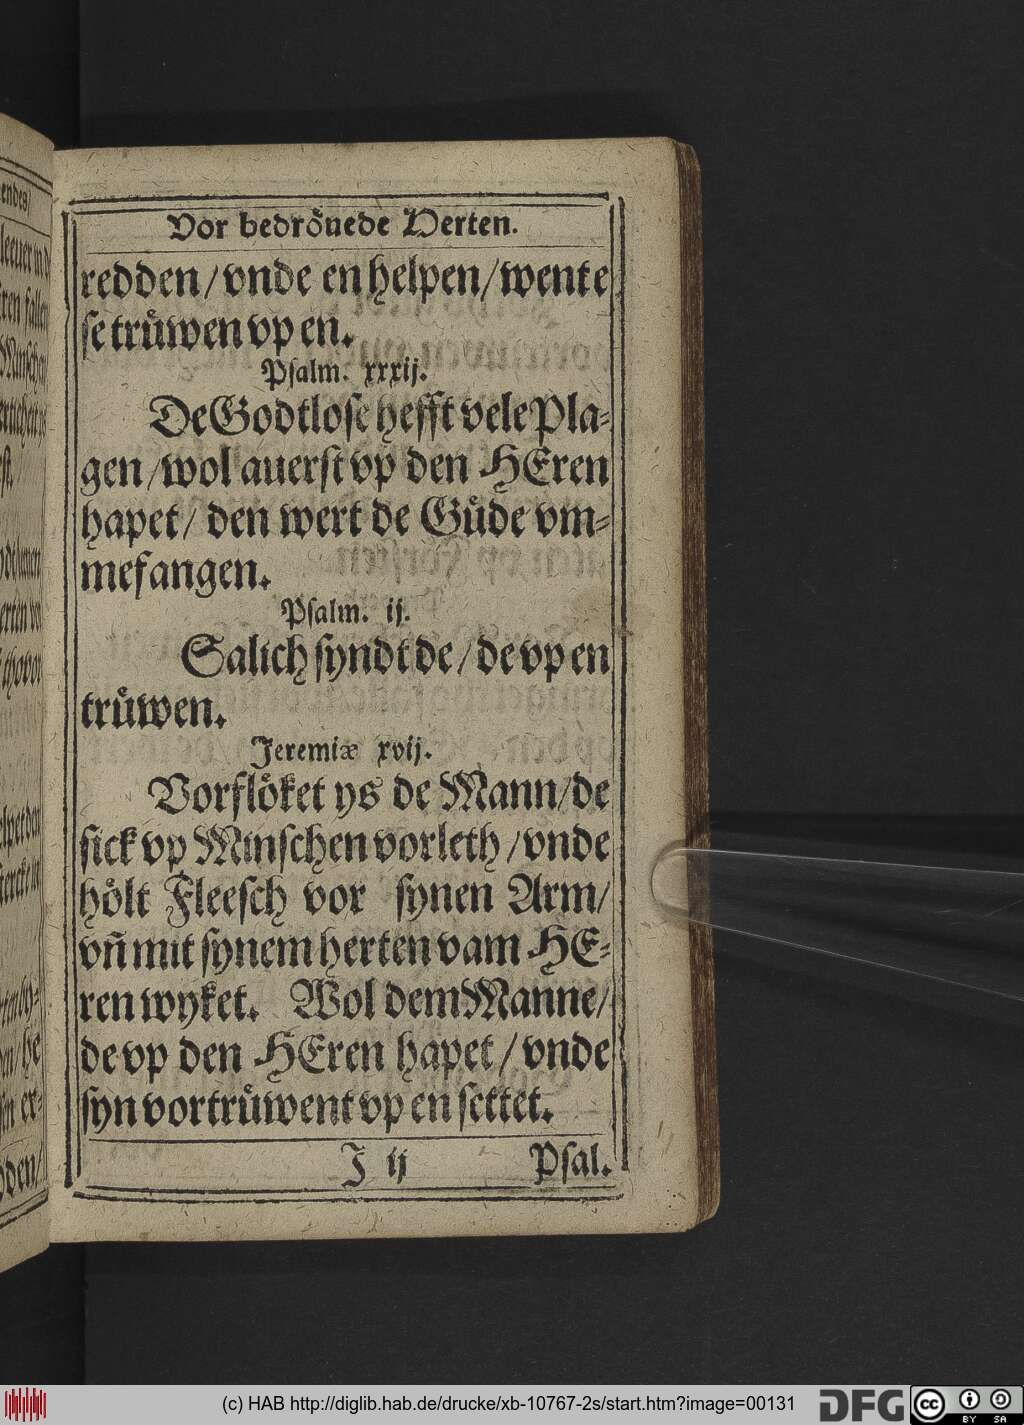 Vor bedroͤuede Herten.
redden / vnde en helpen / wente
se truͤwen vp en.
Psalm. xxxij.
De Godtlose hefft vele Pla-
gen / wol auerst vp den HEren
hapet / den wert de Guͤde vm-
mefangen.
Psalm. ij.
Salich syndt de / de vp en
truͤwen.
Jeremiæ xvij.
Vorfloͤket ys de Mann / de
sick vp Minschen vorleth / vnde
hoͤlt Fleesch vor synen Arm /
vñ mit synem herten vam HE-
ren wyket. Wol dem Manne /
de vp den HEren hapet / vnde
syn vortruͤwent vp en settet.
J ij Psal.
(c) HAB http://diglib.hab.de/drucke/xb-10767-2s/start.htm?image=00131
DFG
cc BY SA